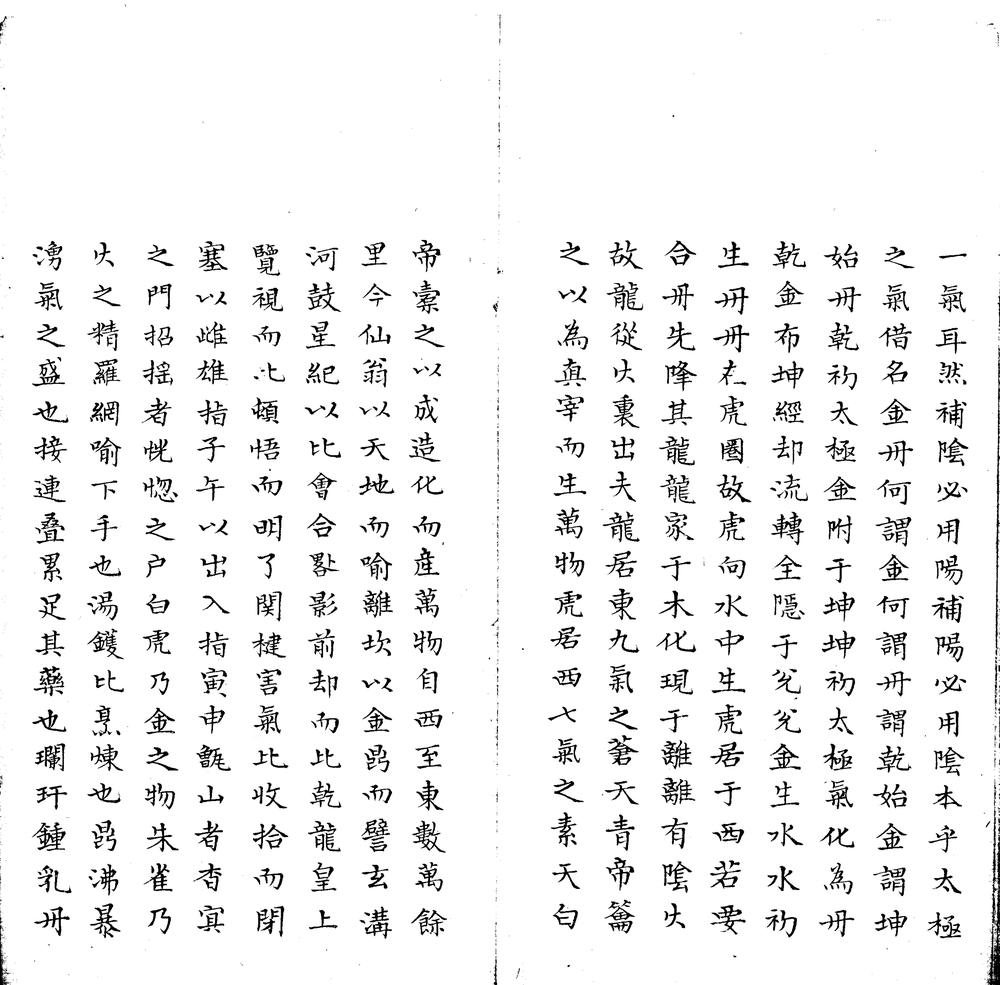 一氣耳然補陰必用陽補陽必用陰本乎太極
之氣借名金丹何謂金何謂丹謂乾始金謂坤
始丹乾初太極金附于坤坤初太極氣化為丹
乾金布坤經却流轉全隱于兌兌金生水水初
生丹丹在虎圈故虎向水中生虎居于西若要
合丹先降其龍龍家于木化現于離離有陰火
故龍從火裏出夫龍居東九氣之蒼天青帝籥
之以為真宰而生萬物虎居西七氣之素天白
帝橐之以成造化而産萬物自西至東數萬餘
里今仙翁以天地而喻離坎以金鼎而譬玄溝
河鼓星紀以比會合晷影前却而比乾龍皇上
覽視而比頓悟而明了関楗害氣比收拾而閉
塞以雌雄指子午以出入指寅申甑山者杳冥
之門招摇者恍惚之户白虎乃金之物朱雀乃
火之精羅網喻下手也湯鑊比烹煉也鼎沸暴
湧氣之盛也接連叠累足其藥也瓓玕鍾乳丹